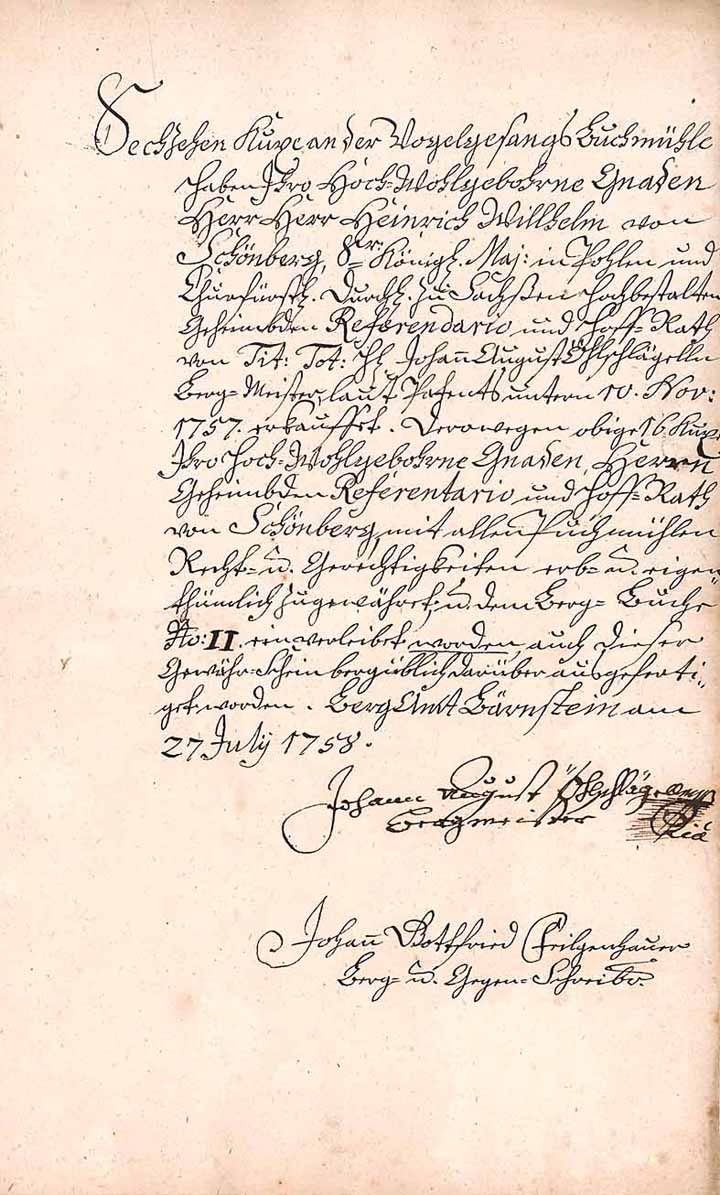 Sechzehen Kuxe an der Vogelgesangs Buchmühle
haben Ihro Hoch-Wohlgebohrne Gnaden
Herr Herr Heinrich Willhelm von
Schönberg, Sr. Königl. Maj: in Pohlen und
Churfürstl. Durchl. zu Sachßen hochbestalten
Geheimbden Referendario und Hoff-Rath
von Tit: Tot: H. Johann August Öhlschlägeln
Berg-Meister, laut Patents untern 10. Nov:
1757. erkauffet. Derowegen obige 16 Kuxe
Ihro Hoch-Wohlgebohrne Gnaden, Herrn
Geheimbden Referentario und Hoff-Rath
von Schönberg, mit allen Puchmühlen
Recht- u. Gerechtigkeiten erb- u. eigen-
thümlich zugewähret, u. dem Berg-Buche
No: II. einverleibet worden auch dieser
Gewähr-Schein bergüblich darüber ausgeferti-
get worden. BergAmt Bärnstein am
27 July 1758.
Johann August Öhlschlägel
Bergmeister
Johann Gottfried Feilgenhauer
Berg- u. Gegen-Schreibr.